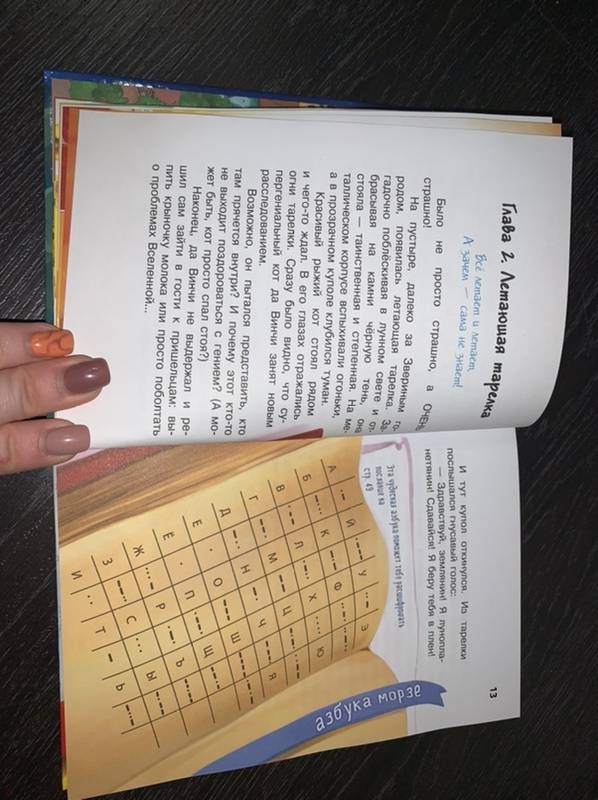 Глава 2. Летающая тарелка
Всё летает и летает,
А зачем — сама не знает!
Было не просто страшно, а ОЧЕНЬ
страшно!
На пустыре, далеко за Звериным го-
родом, появилась летающая тарелка. За-
гадочно поблёскивая в лунном свете и от-
брасывая на камни чёрную тень, она
стояла — таинственная и степенная. На ме-
таллическом корпусе вспыхивали огоньки,
а в прозрачном куполе клубился туман.
Красивый рыжий кот стоял рядом
и чего-то ждал. В его глазах отражались
огни тарелки. Сразу было видно, что су-
пергениальный кот да Винчи занят новым
расследованием.
Возможно, он пытался представить, кто
там прячется внутри? И почему этот кто-то
не выходит поздороваться с гением? (А мо-
жет быть, кот просто спал стоя?)
Наконец да Винчи не выдержал и ре-
шил сам зайти в гости к пришельцам: вы-
пить крыночку молока или просто поболтать
о проблемах Вселенной...
И тут купол откинулся. Из тарелки
послышался гнусавый голос:
— Здравствуй, землянин! Я лунопла-
нетянин! Сдавайся! Я беру тебя в плен!
13
азбука морзе
Эта чудесная азбука поможет тебе расшифровать
послание на
стр. 49
А Й У Э
Б К Ф Ю
В Л Х Я
Г М Ц
Д Н Ч
Е О Ш
Ё П Щ
Ж Р Ъ
З С Ы
И Т Ь